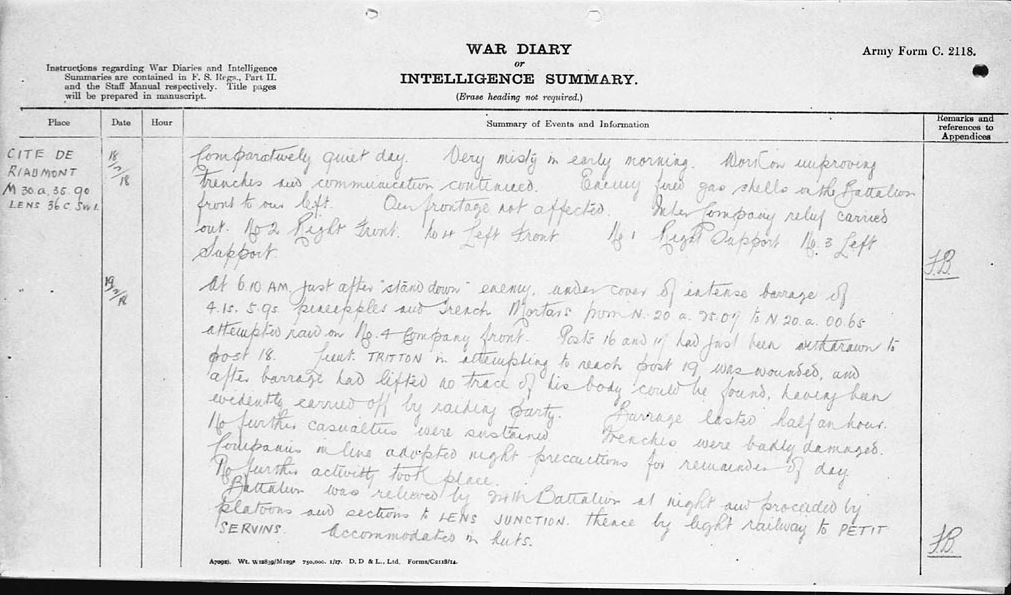 WAR DIARY
or
INTELLIGENCE SUMMARY.
(Erase heading not required.)
Army Form C. 2118.
Instructions regarding War Diaries and Intelligence
Summaries are contained in F. S. Regs., Part II.
and the Staff Manual respectively. Title pages
will be prepared in manuscript.
Place Date Hour Summary of Events and Information Remarks and
references to
Appendices
CITE DE
RIAUMONT
M 30.a.35.90
LENS 36c SW1
18
Comparatively quiet day. Very misty in early morning. Work on improving
trenches and communication continued. Enemy fired gas shells on the Battalion
front to our left. Our frontage not affected. Inter Company relief carried
out. No 2 Right Front. No 4 Left Front No 1 Right Support No. 3 Left
Support
F.B.
19
At 6.10 AM. just after "stand down" enemy, under cover of intense barrage of
4.1s. 5.9s. pineapples and Trench Mortars from N. 20 a. 35.07 to N. 20.a. 00.65
attempted raid on No. 4 Company front. Posts 16 and 17 had just been withdrawn to
post 18. Lieut. TRITTON in attempting to reach post 19 was wounded, and
after barrage had lifted no trace of his body could be found, having been
evidently carried off by raiding party. Barrage lasted half an hour.
No further casualties were sustained Trenches were badly damaged.
Companies in line adopted night precautions for remainder of day
No further activity took place.
Battalion was relieved by 24th Battalion at night and proceeded by
platoons and sections to LENS JUNCTION. thence by light railway to PETIT
SERVINS. Accommodated in huts.
F.B.
750,000. 1/17. D. D & L., Ltd. Forms/C2118/14.